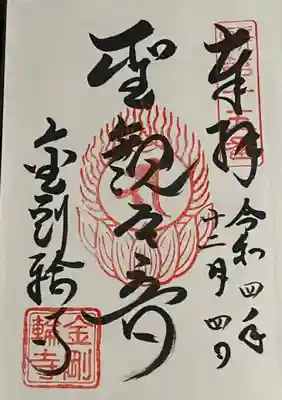 奉拝
令和四年
十二月四日
聖観世音
金剛輪寺
金剛
輪寺